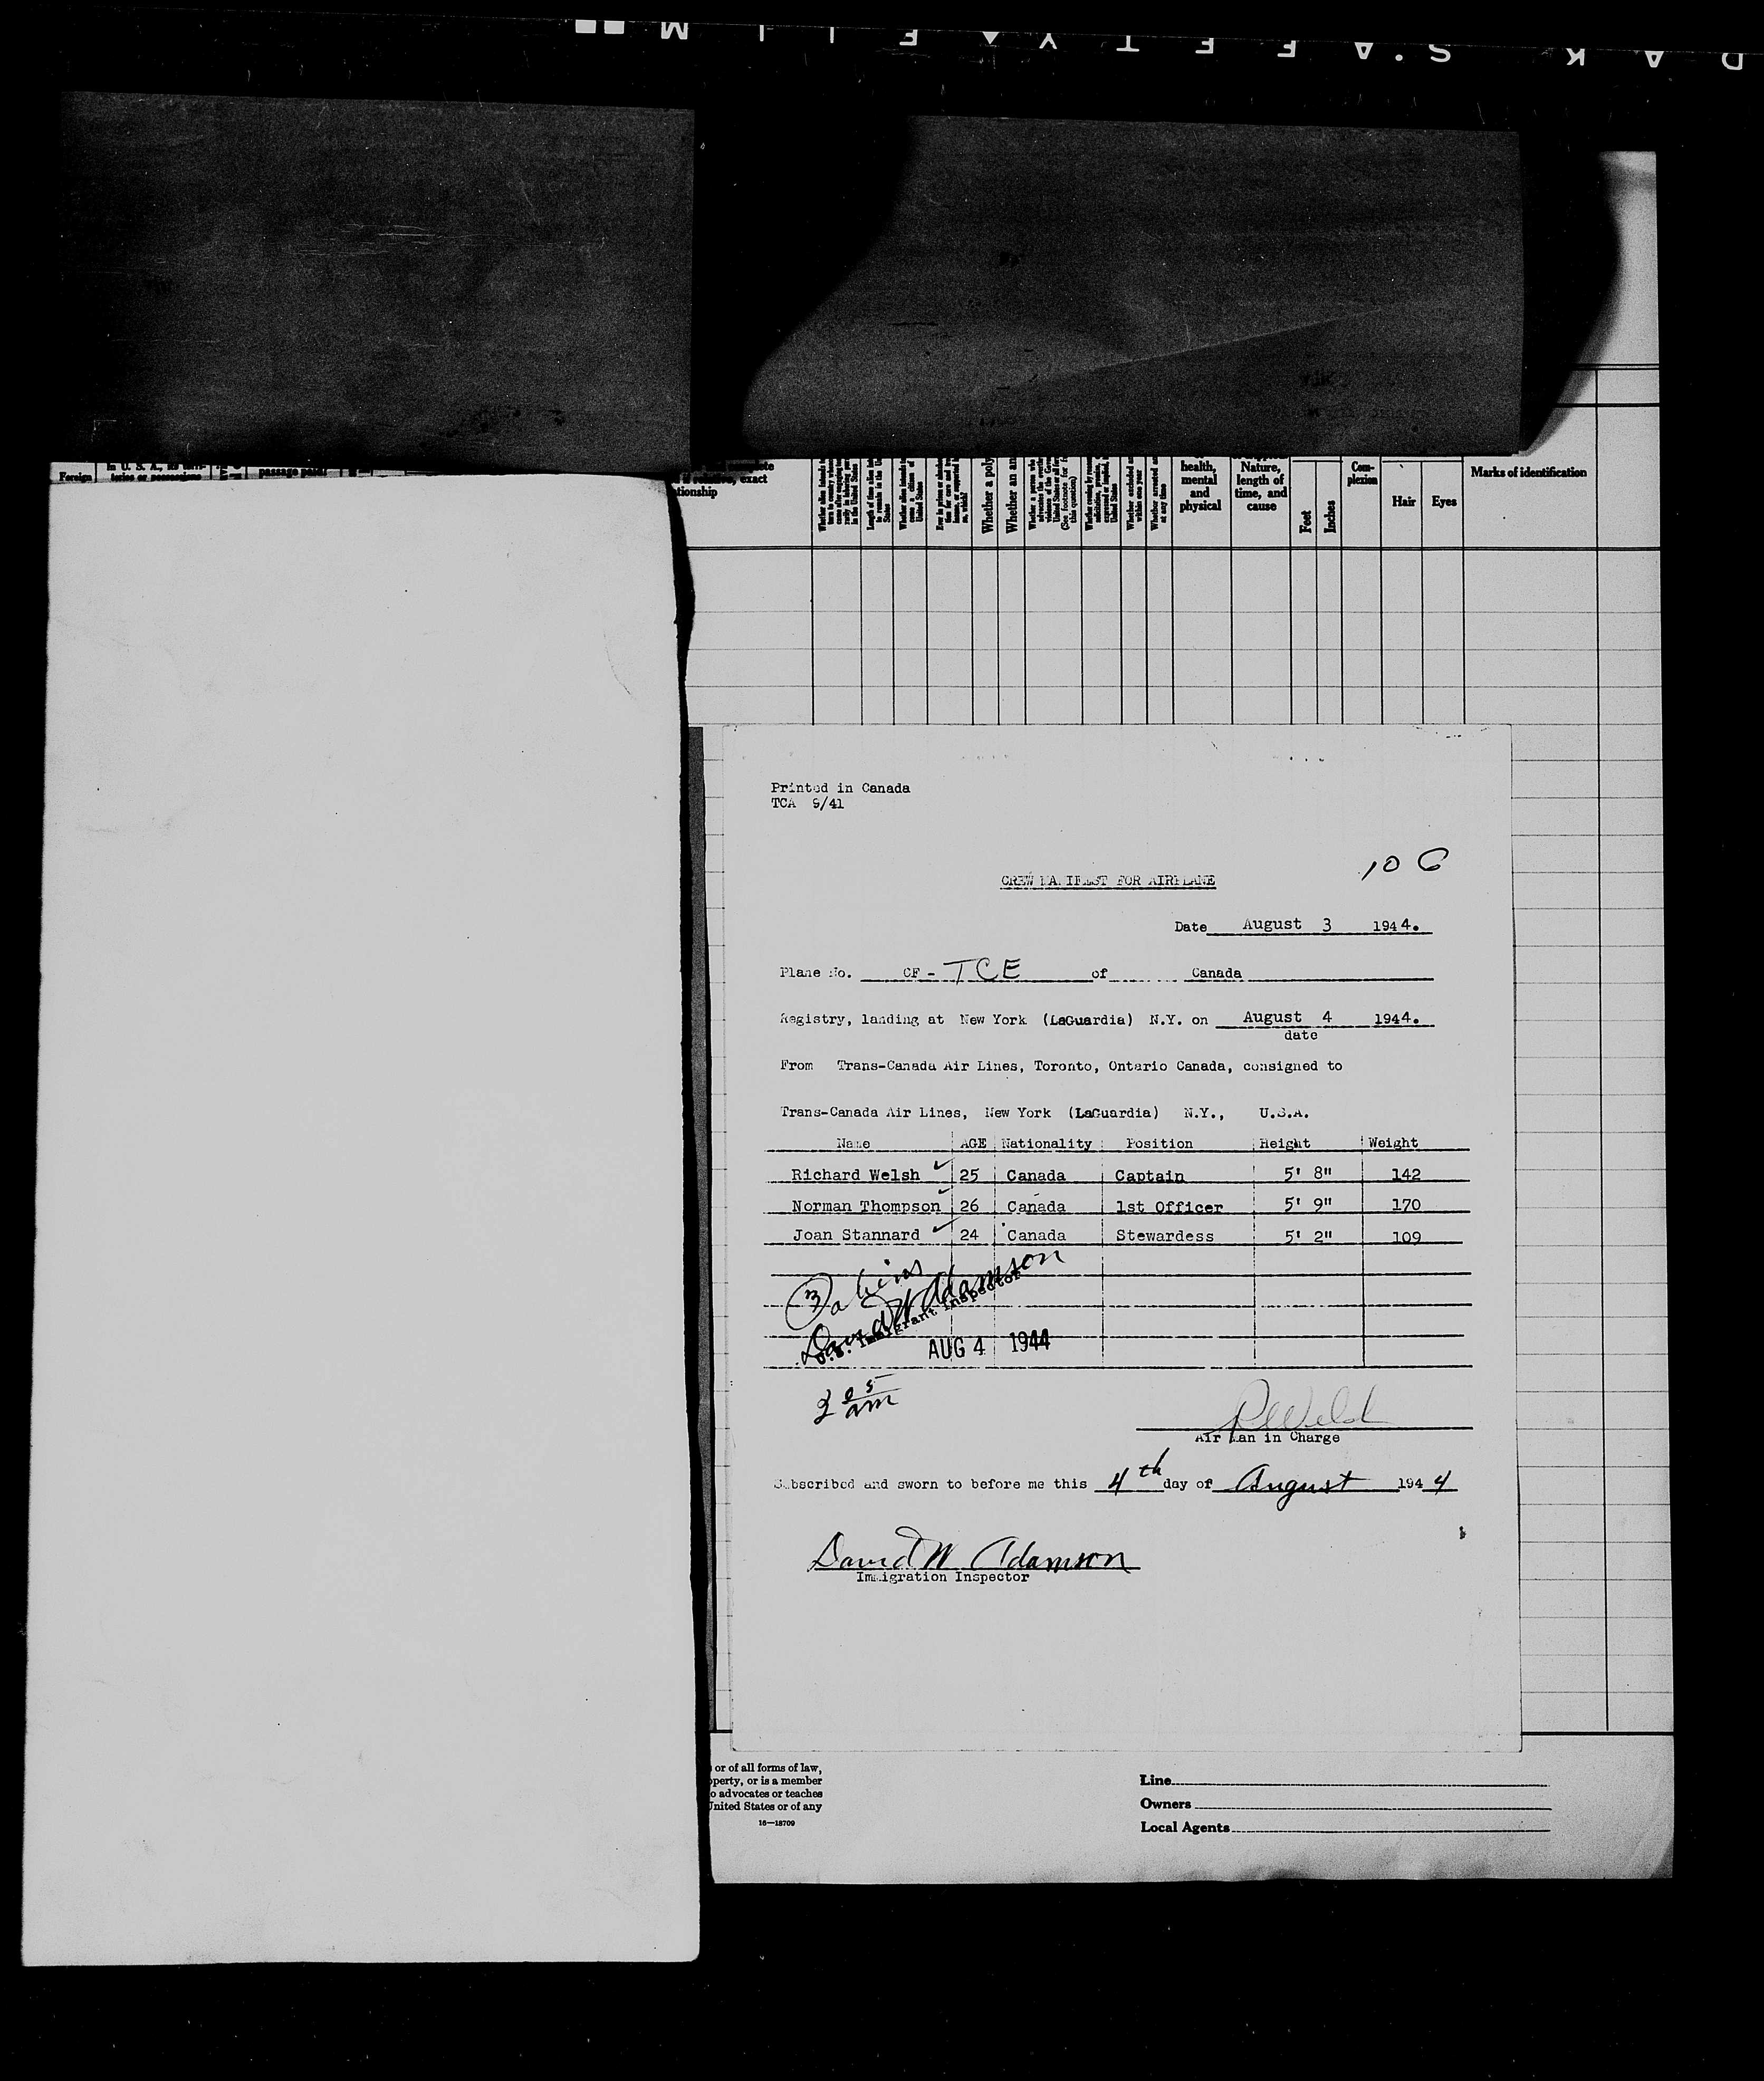 SAFETY FILM
Foreign
passage paid
exact
Whether a poly
Whether an an
health,
mental
and
physical
Nature,
length of
time, and
cause
Feet
Inches
Com-
plexion
Hair
Eyes
Marks of identification
Printed in Canada
TCA 9/41
10 C
CREW MANIFEST FOR AIRPLANE
Date August 3 1944.
Plane No. CF - TCE of Canada
Registry, landing at New York (LaGuardia) N.Y. on August 4 1944.
date
From Trans-Canada Air Lines, Toronto, Ontario Canada, consigned to
Trans-Canada Air Lines, New York (LaGuardia) N.Y., U.S.A.
Name AGE Nationality Position Height Weight
Richard Welsh ✓ 25 Canada Captain 5' 8" 142
Norman Thompson ✓ 26 Canada 1st Officer 5' 9" 170
Joan Stannard ✓ 24 Canada Stewardess 5' 2" 109
3
David W Adamson
U.S. Immigrant Inspector
AUG 4 1944
05
am
Air Man in Charge
Subscribed and sworn to before me this 4th day of August 1944
David W. Adamson
Immigration Inspector
or of all forms of law,
perty, or is a member
o advocates or teaches
United States or of any
16—18709
Line
Owners
Local Agents